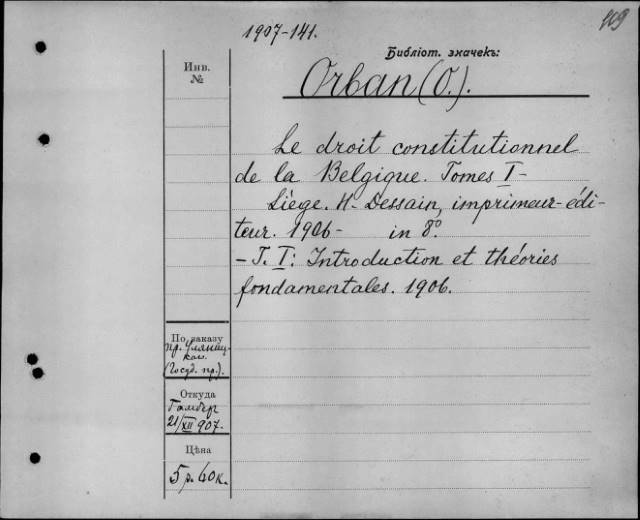 1907-141.
Библіот. значекъ:
Инв.
№
Orban (O.).
Le droit constitutionnel
de la Belgique. Tomes I-
Liège. H. Dessain, imprimeur-édi-
teur. 1906- in 8º.
- T. I: Introduction et théories
fondamentales. 1906.
По заказу
пр. Уляниц-
каго.
(Госуд. пр.).
Откуда
21/XII 907.
Цѣна
5 р. 60 к.